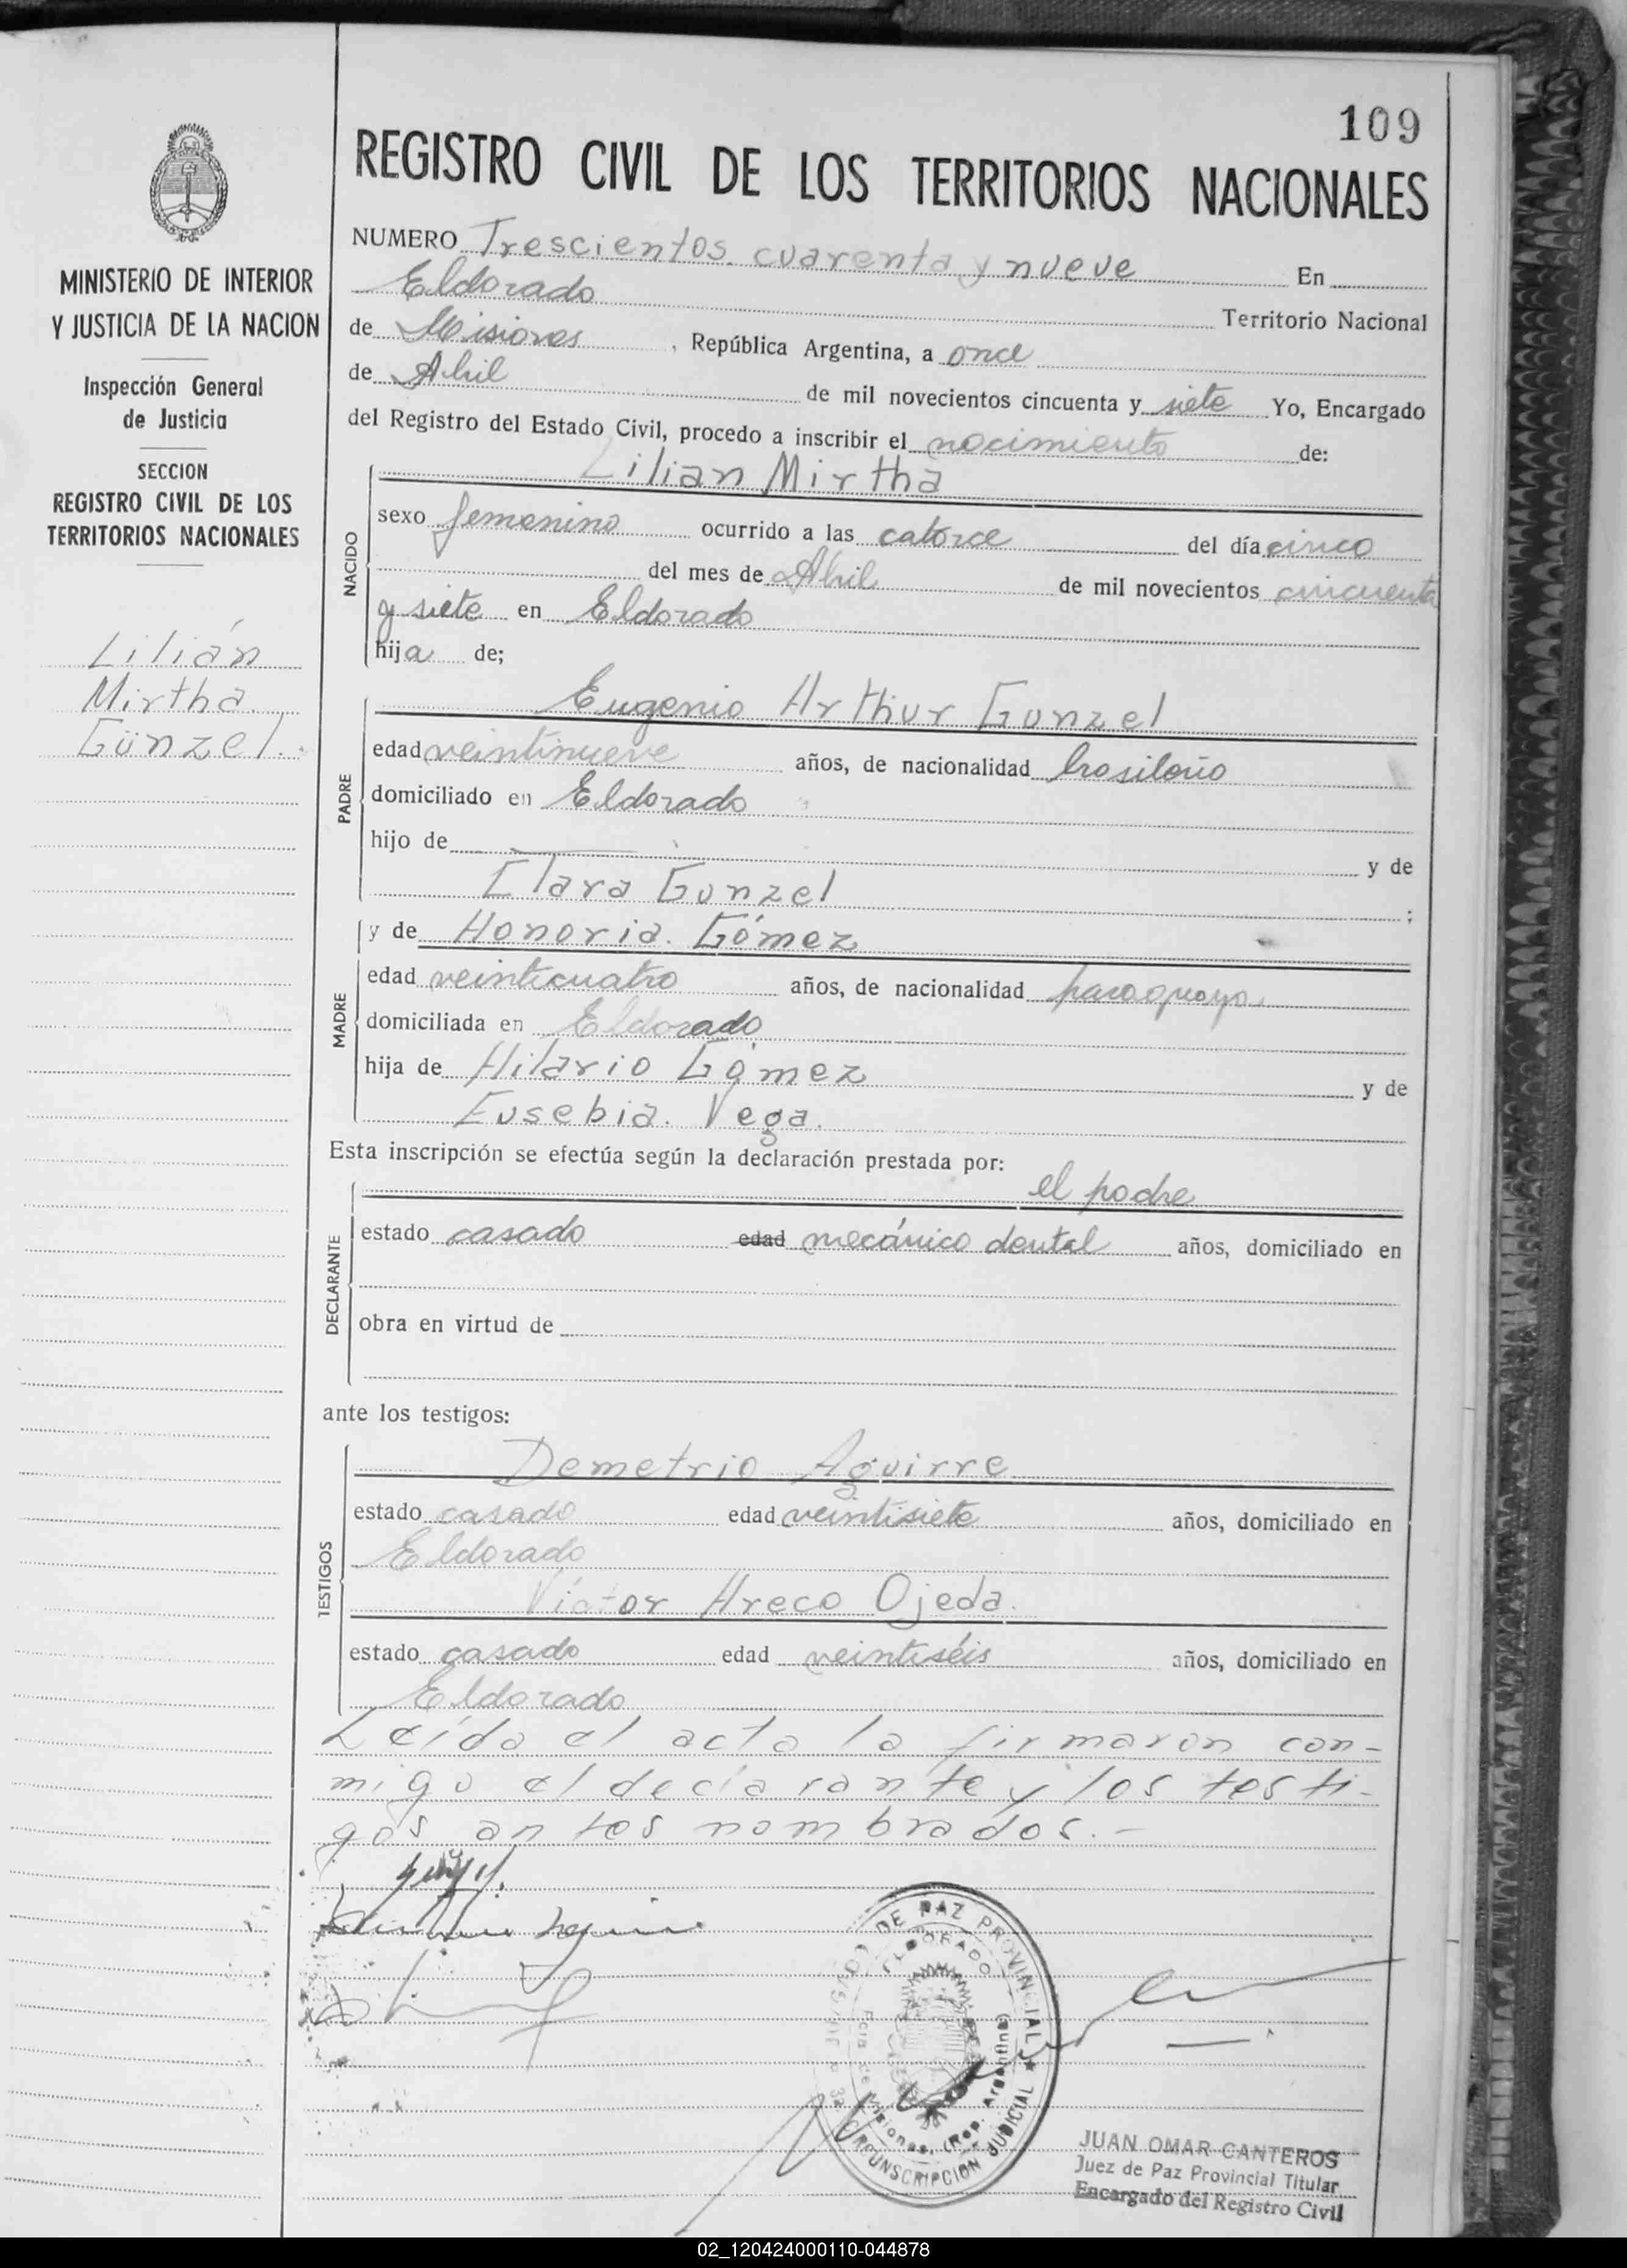 109
REGISTRO CIVIL DE LOS TERRITORIOS NACIONALES
MINISTERIO DE INTERIOR
Y JUSTICIA DE LA NACION
Inspección General
de Justicia
SECCION
REGISTRO CIVIL DE LOS
TERRITORIOS NACIONALES
Lilián
Mirtha
Günzel.
NUMERO Trescientos cuarenta y nueve En
Eldorado Territorio Nacional
de Misiones, República Argentina, a once
de Abril de mil novecientos cincuenta y siete Yo, Encargado
del Registro del Estado Civil, procedo a inscribir el nacimiento de:
NACIDO
Lilian Mirtha
sexo femenino ocurrido a las catorce del día cinco
del mes de Abril de mil novecientos cincuenta
y siete en Eldorado
hija de;
PADRE
Eugenio Arthur Gunzel
edad veintinueve años, de nacionalidad brasileño
domiciliado en Eldorado
hijo de y de
Clara Gunzel ;
MADRE
y de Honoria Gómez
edad veinticuatro años, de nacionalidad paraguaya.
domiciliada en Eldorado
hija de Hilario Gómez y de
Eusebia Vega.
Esta inscripción se efectúa según la declaración prestada por:
DECLARANTE
el padre
estado casado edad mecánico dental años, domiciliado en
obra en virtud de
ante los testigos:
TESTIGOS
Demetrio Aguirre
estado casado edad veintisiete años, domiciliado en
Eldorado
Victor Areco Ojeda.
estado casado edad veintiséis años, domiciliado en
Eldorado
Leída el acta la firmaron con-
migo el declarante y los testi-
gos antes nombrados.-
DE PAZ PROVINCIAL
ELDORADO
Pcia de Misiones, (Rep. Argentina)
CIRCUNSCRIPCION JUDICIAL
JUAN OMAR CANTEROS
Juez de Paz Provincial Titular
Encargado del Registro Civil
02_120424000110-044878